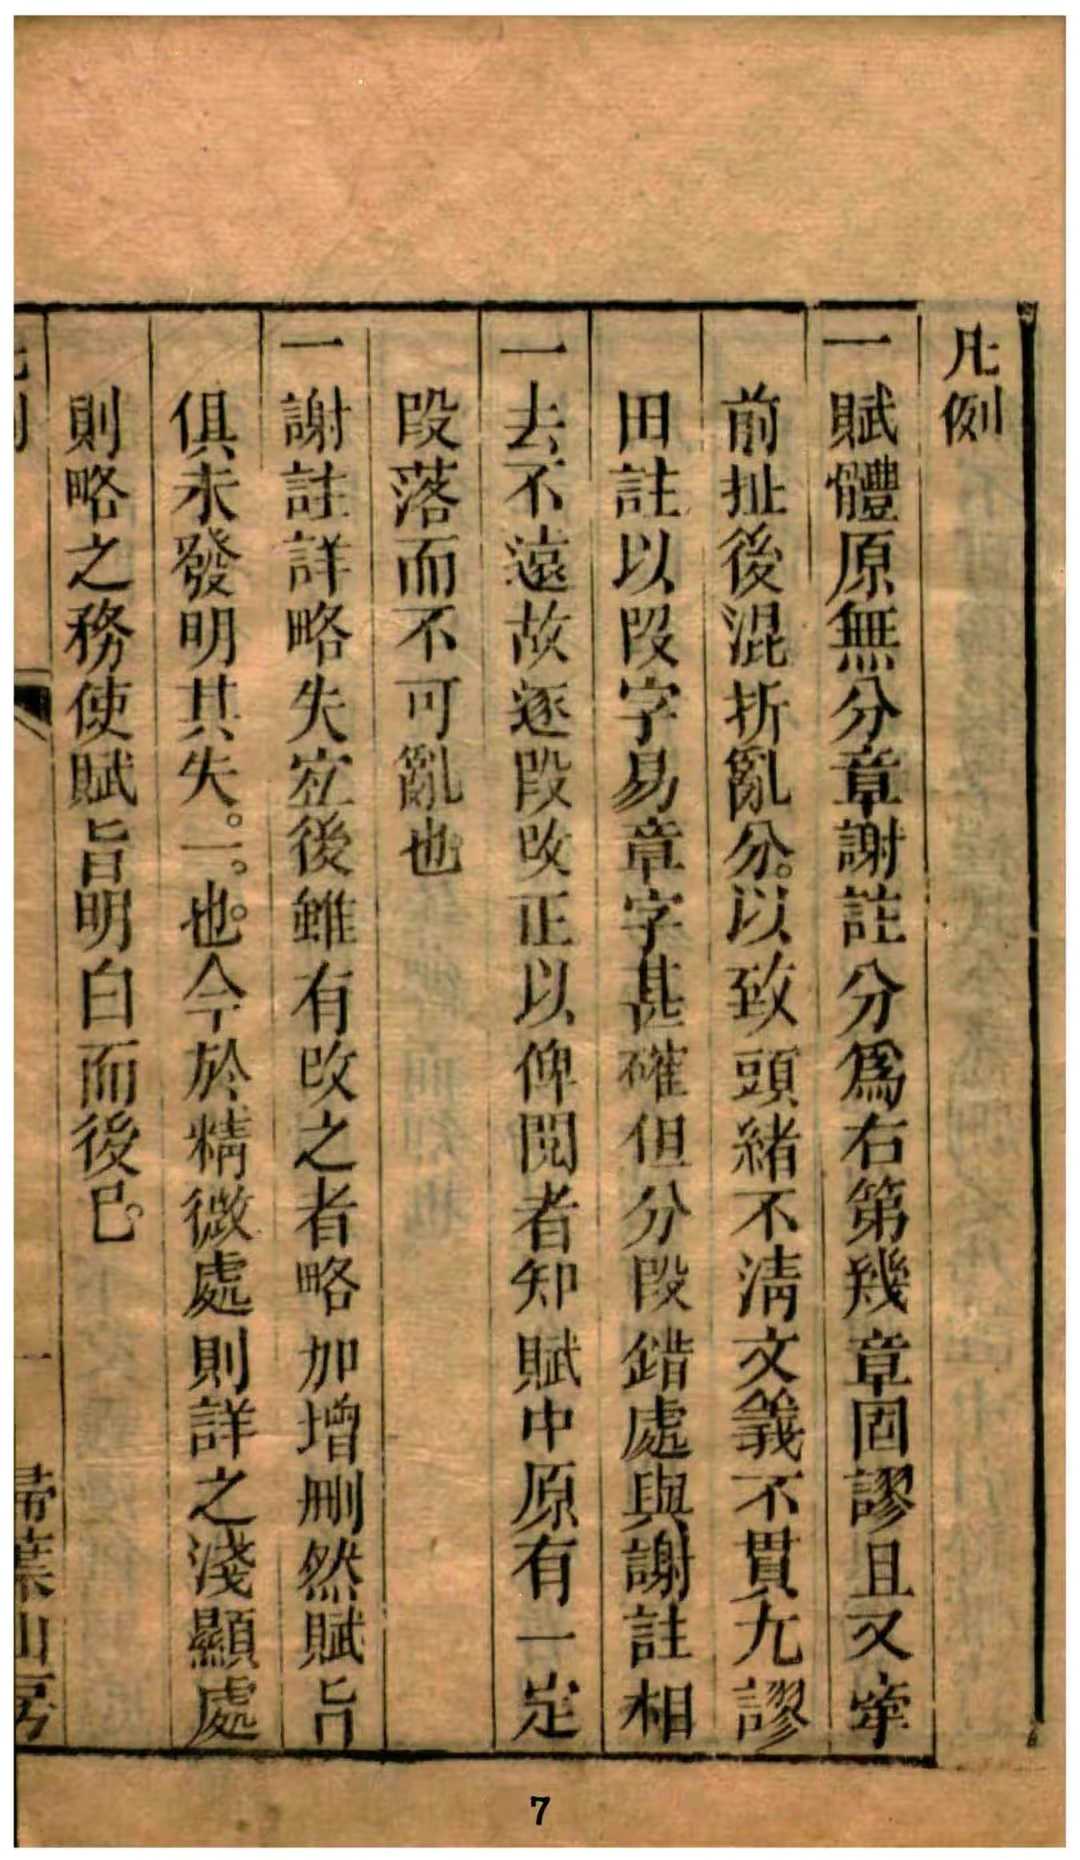 凡例
一賦體原無分章謝註分爲右第幾章固謬且又牽
前扯後混折亂分。以致頭緒不淸文義不貫尢謬
田註以段字易章字甚確但分段錯處與謝註相
一去不遠故逐段改正以俾閱者知賦中原有一定
段落而不可亂也
一謝註詳略失宜後雖有改之者略加增刪然賦旨
俱未發明其失。一。也。今於精微處則詳之淺顯處
則略之務使賦旨明白而後已。
凡例
一
掃葉山房
7